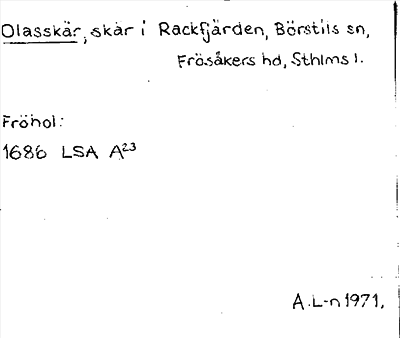 Olasskär, skär i Rackfjärden, Börstils sn,
Frösåkers hd, Sthlms l.
Fröhol:
1686 LSA A23
A.L-n 1971.